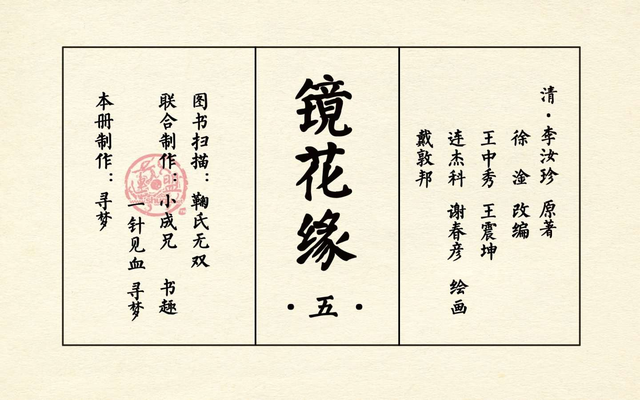 清·李汝珍 原著
徐淦 改编
王中秀 王震坤
连杰科 谢春彦 绘画
戴敦邦
镜花缘
·五·
图书扫描：鞠氏无双
联合制作：小成兄 书趣
一针见血 寻梦
本册制作：寻梦